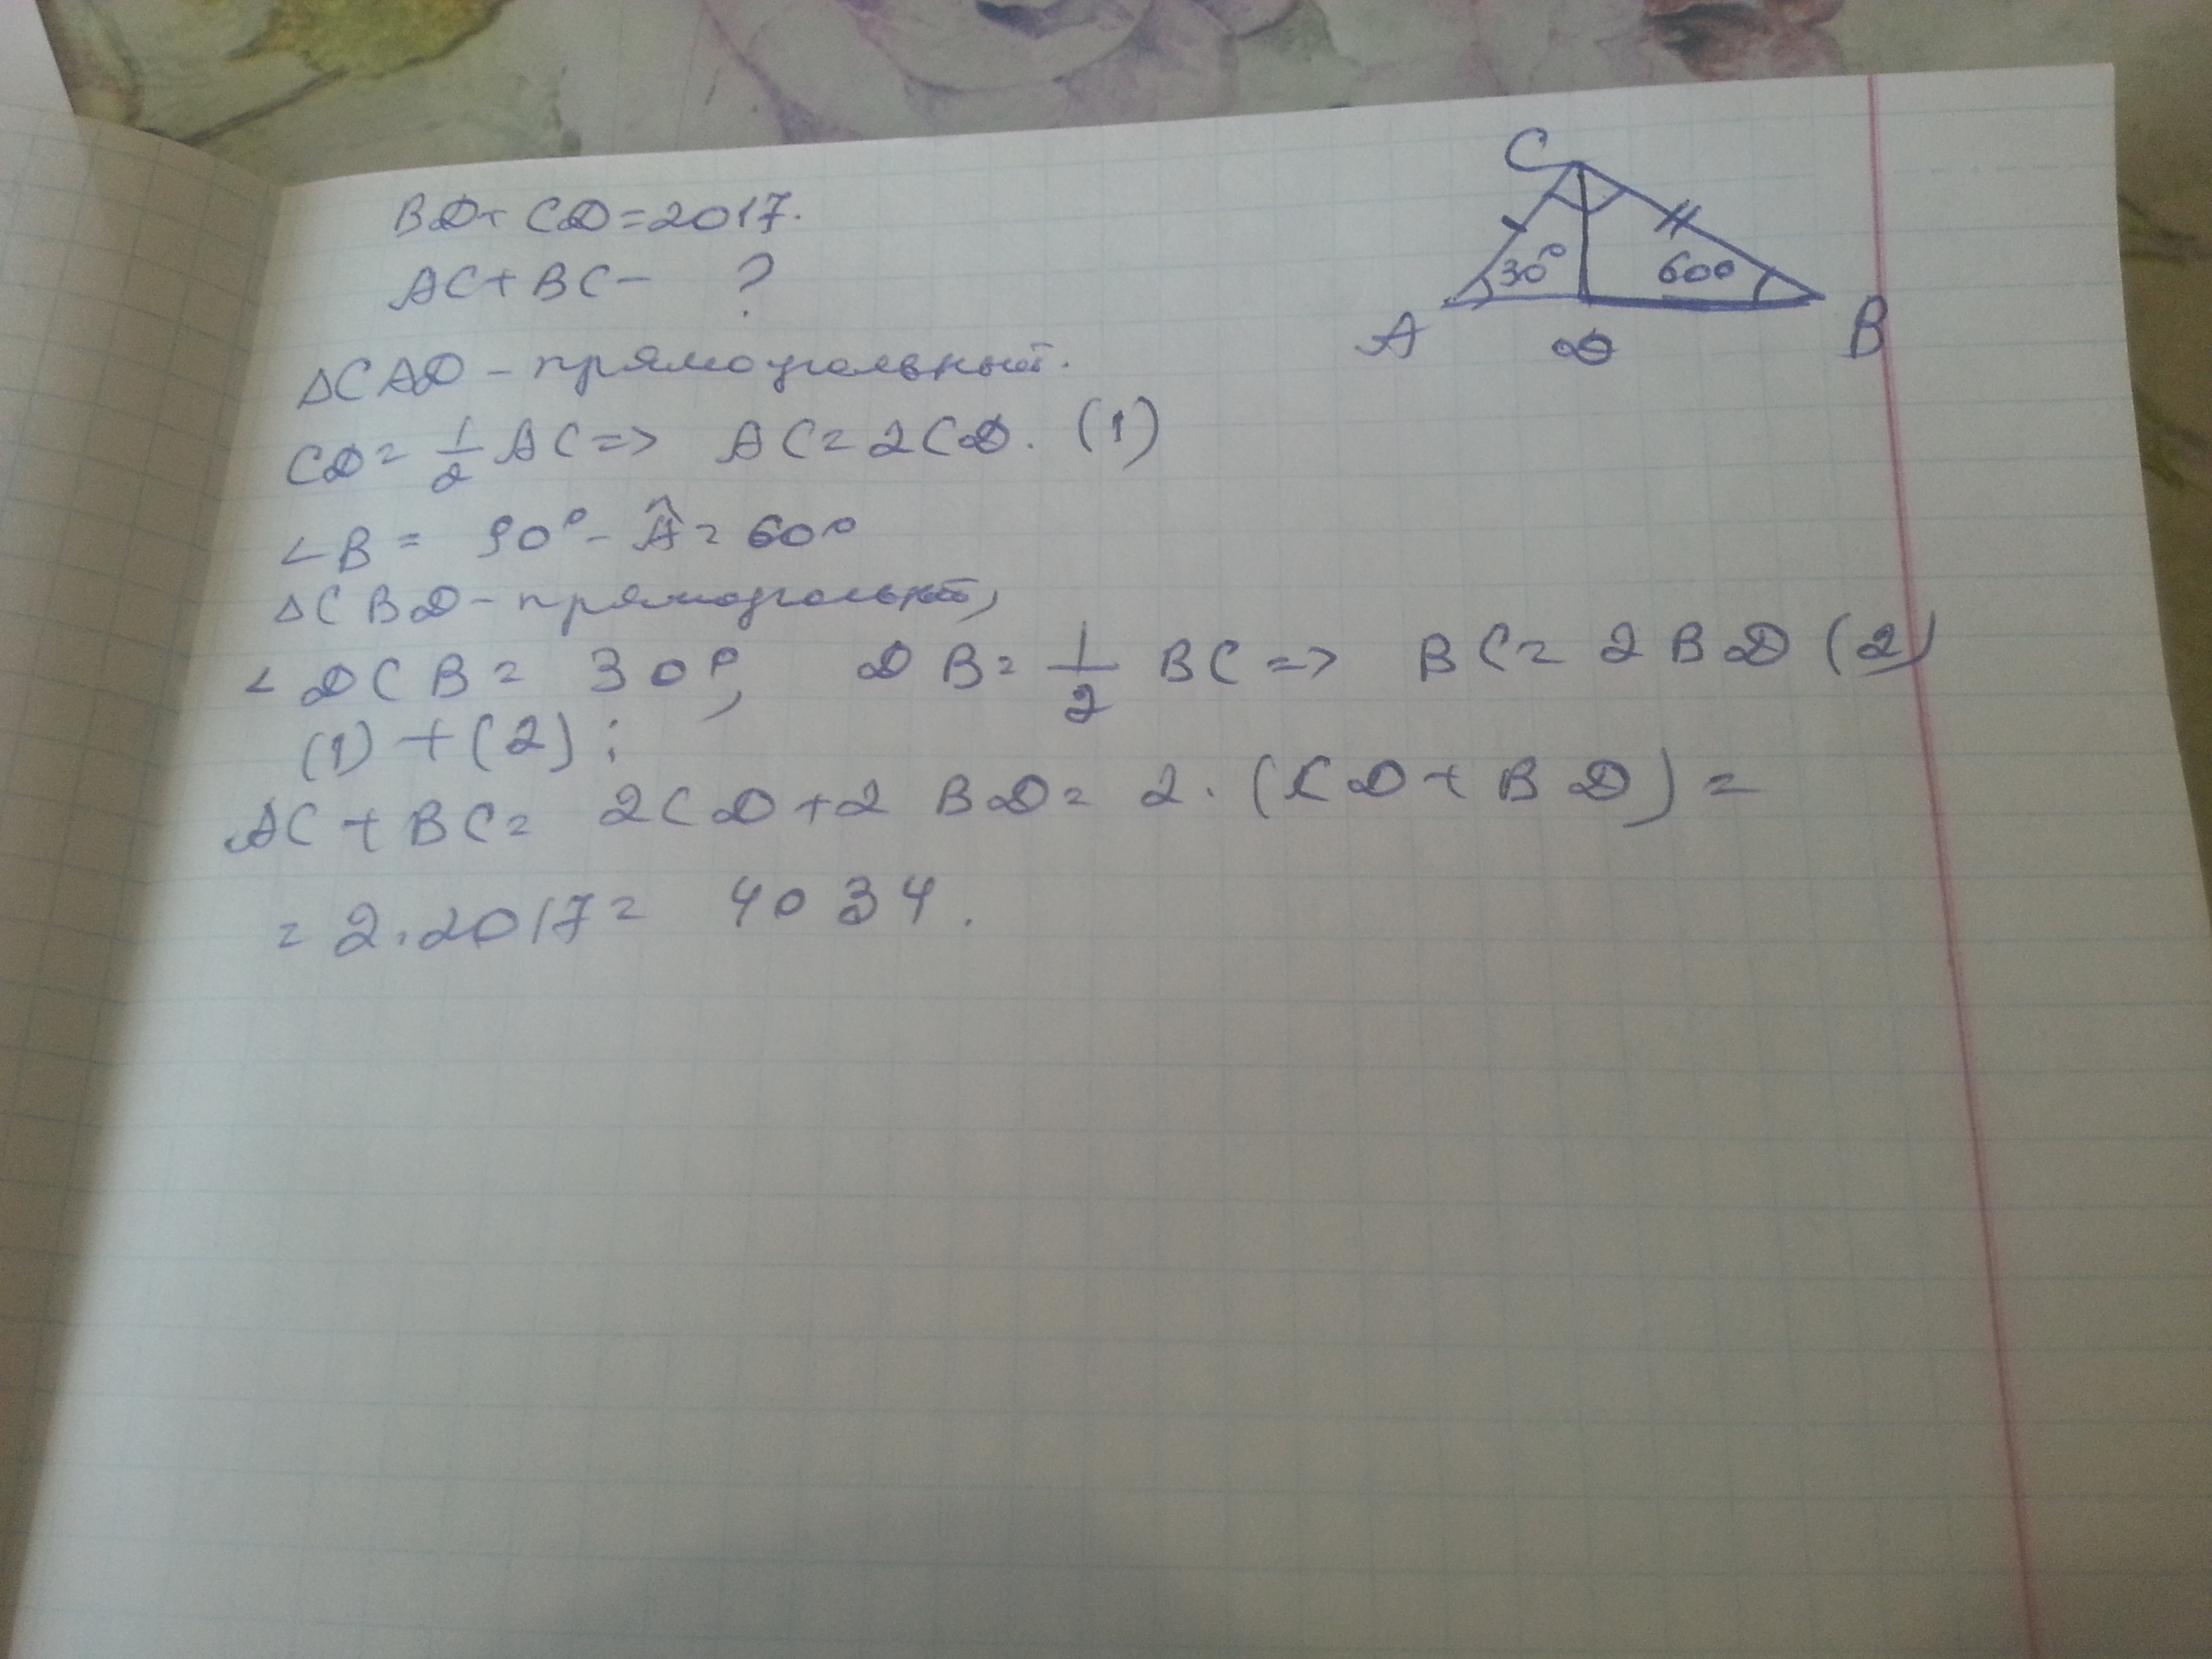 BD+ CD=2017.
AC+BC- ?
C
30° 60°
A D B
△CAD - прямоугольный.
CD= 1/2 AC=> AC=2CD. (1)
∠B = 90°- Â= 60°
△CBD-прямоугольный,
∠DCB= 30°, DB= 1/2 BC=> BC=2BD (2)
(1)+(2):
AC+BC= 2CD+2BD= 2·(CD+BD)=
=2·2017= 4034.